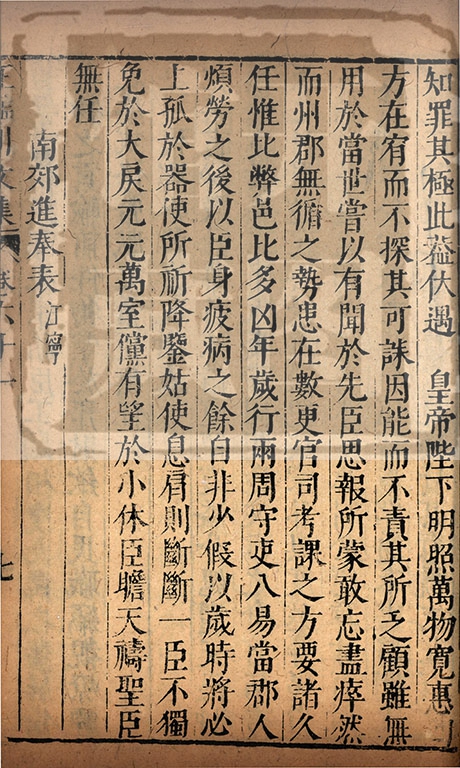 知罪其極此蓋伏遇　皇帝陛下明照萬物寬惠
方在宥而不探其可誅因能而不責其所乏顧雖無
用於當世嘗以有聞於先臣思報所蒙敢忘盡瘁然
而州郡無循之勢患在數更官司考課之方要諸久
任惟比弊邑比多凶年歲行兩周守吏八易當郡人
煩勞之後以臣身疲病之餘自非少假以歲時將必
上孤於器使所祈降鑒姑使息肩則斷斷一臣不獨
免於大戾元元萬室儻有望於小休臣瞻天禱聖臣
無任
南郊進奉表江寧
七